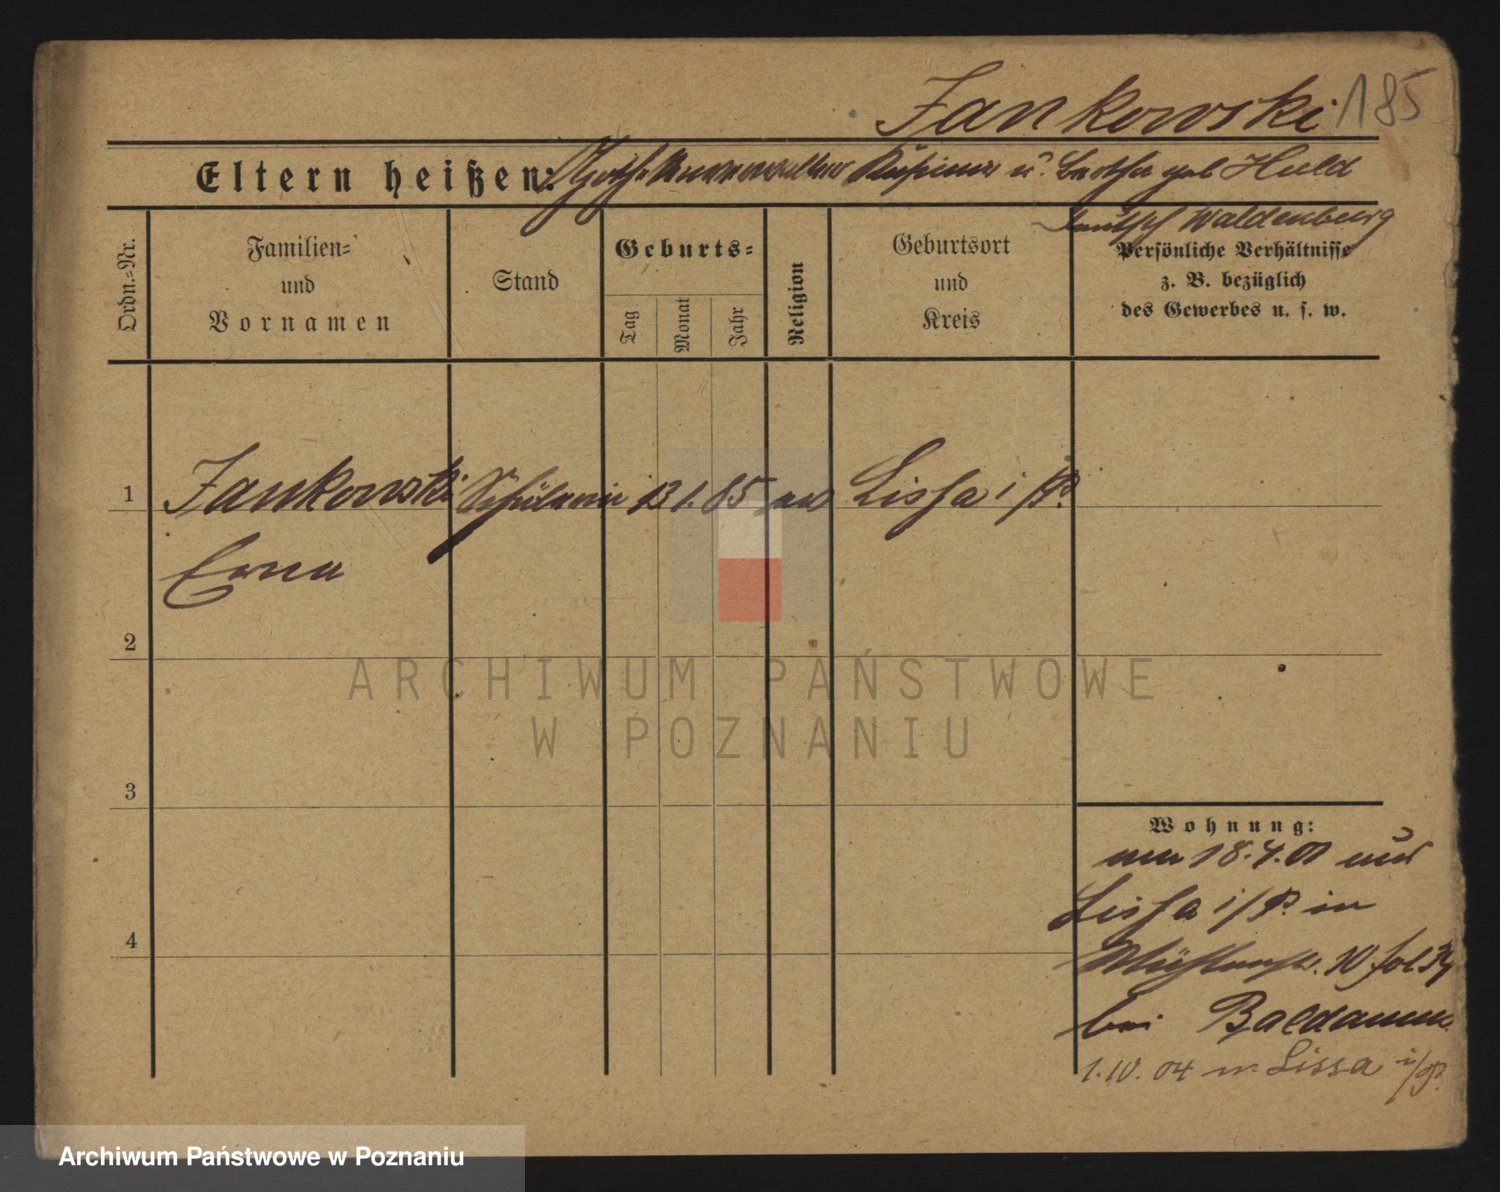 Jankowski 185
Eltern heißen: u. Bertha geb Huld
Deutsch Waldenburg
Ordn.-Nr.
Familien-
und
Vornamen
Stand
Geburts-
Tag
Monat
Jahr
Religion
Geburtsort
und
Kreis
Persönliche Verhältnisse
z. B. bezüglich
des Gewerbes u. s. w.
1 Jankowski Schülerin 13 1. 85 Lissa i/P.
Erna
2
3
4
Wohnung:
18.4.01 aus
Lissa i/P. in
10
bei Baldamus
1.IV. 04 n. Lissa i/P.
ARCHIWUM PAŃSTWOWE
W POZNANIU
Archiwum Państwowe w Poznaniu